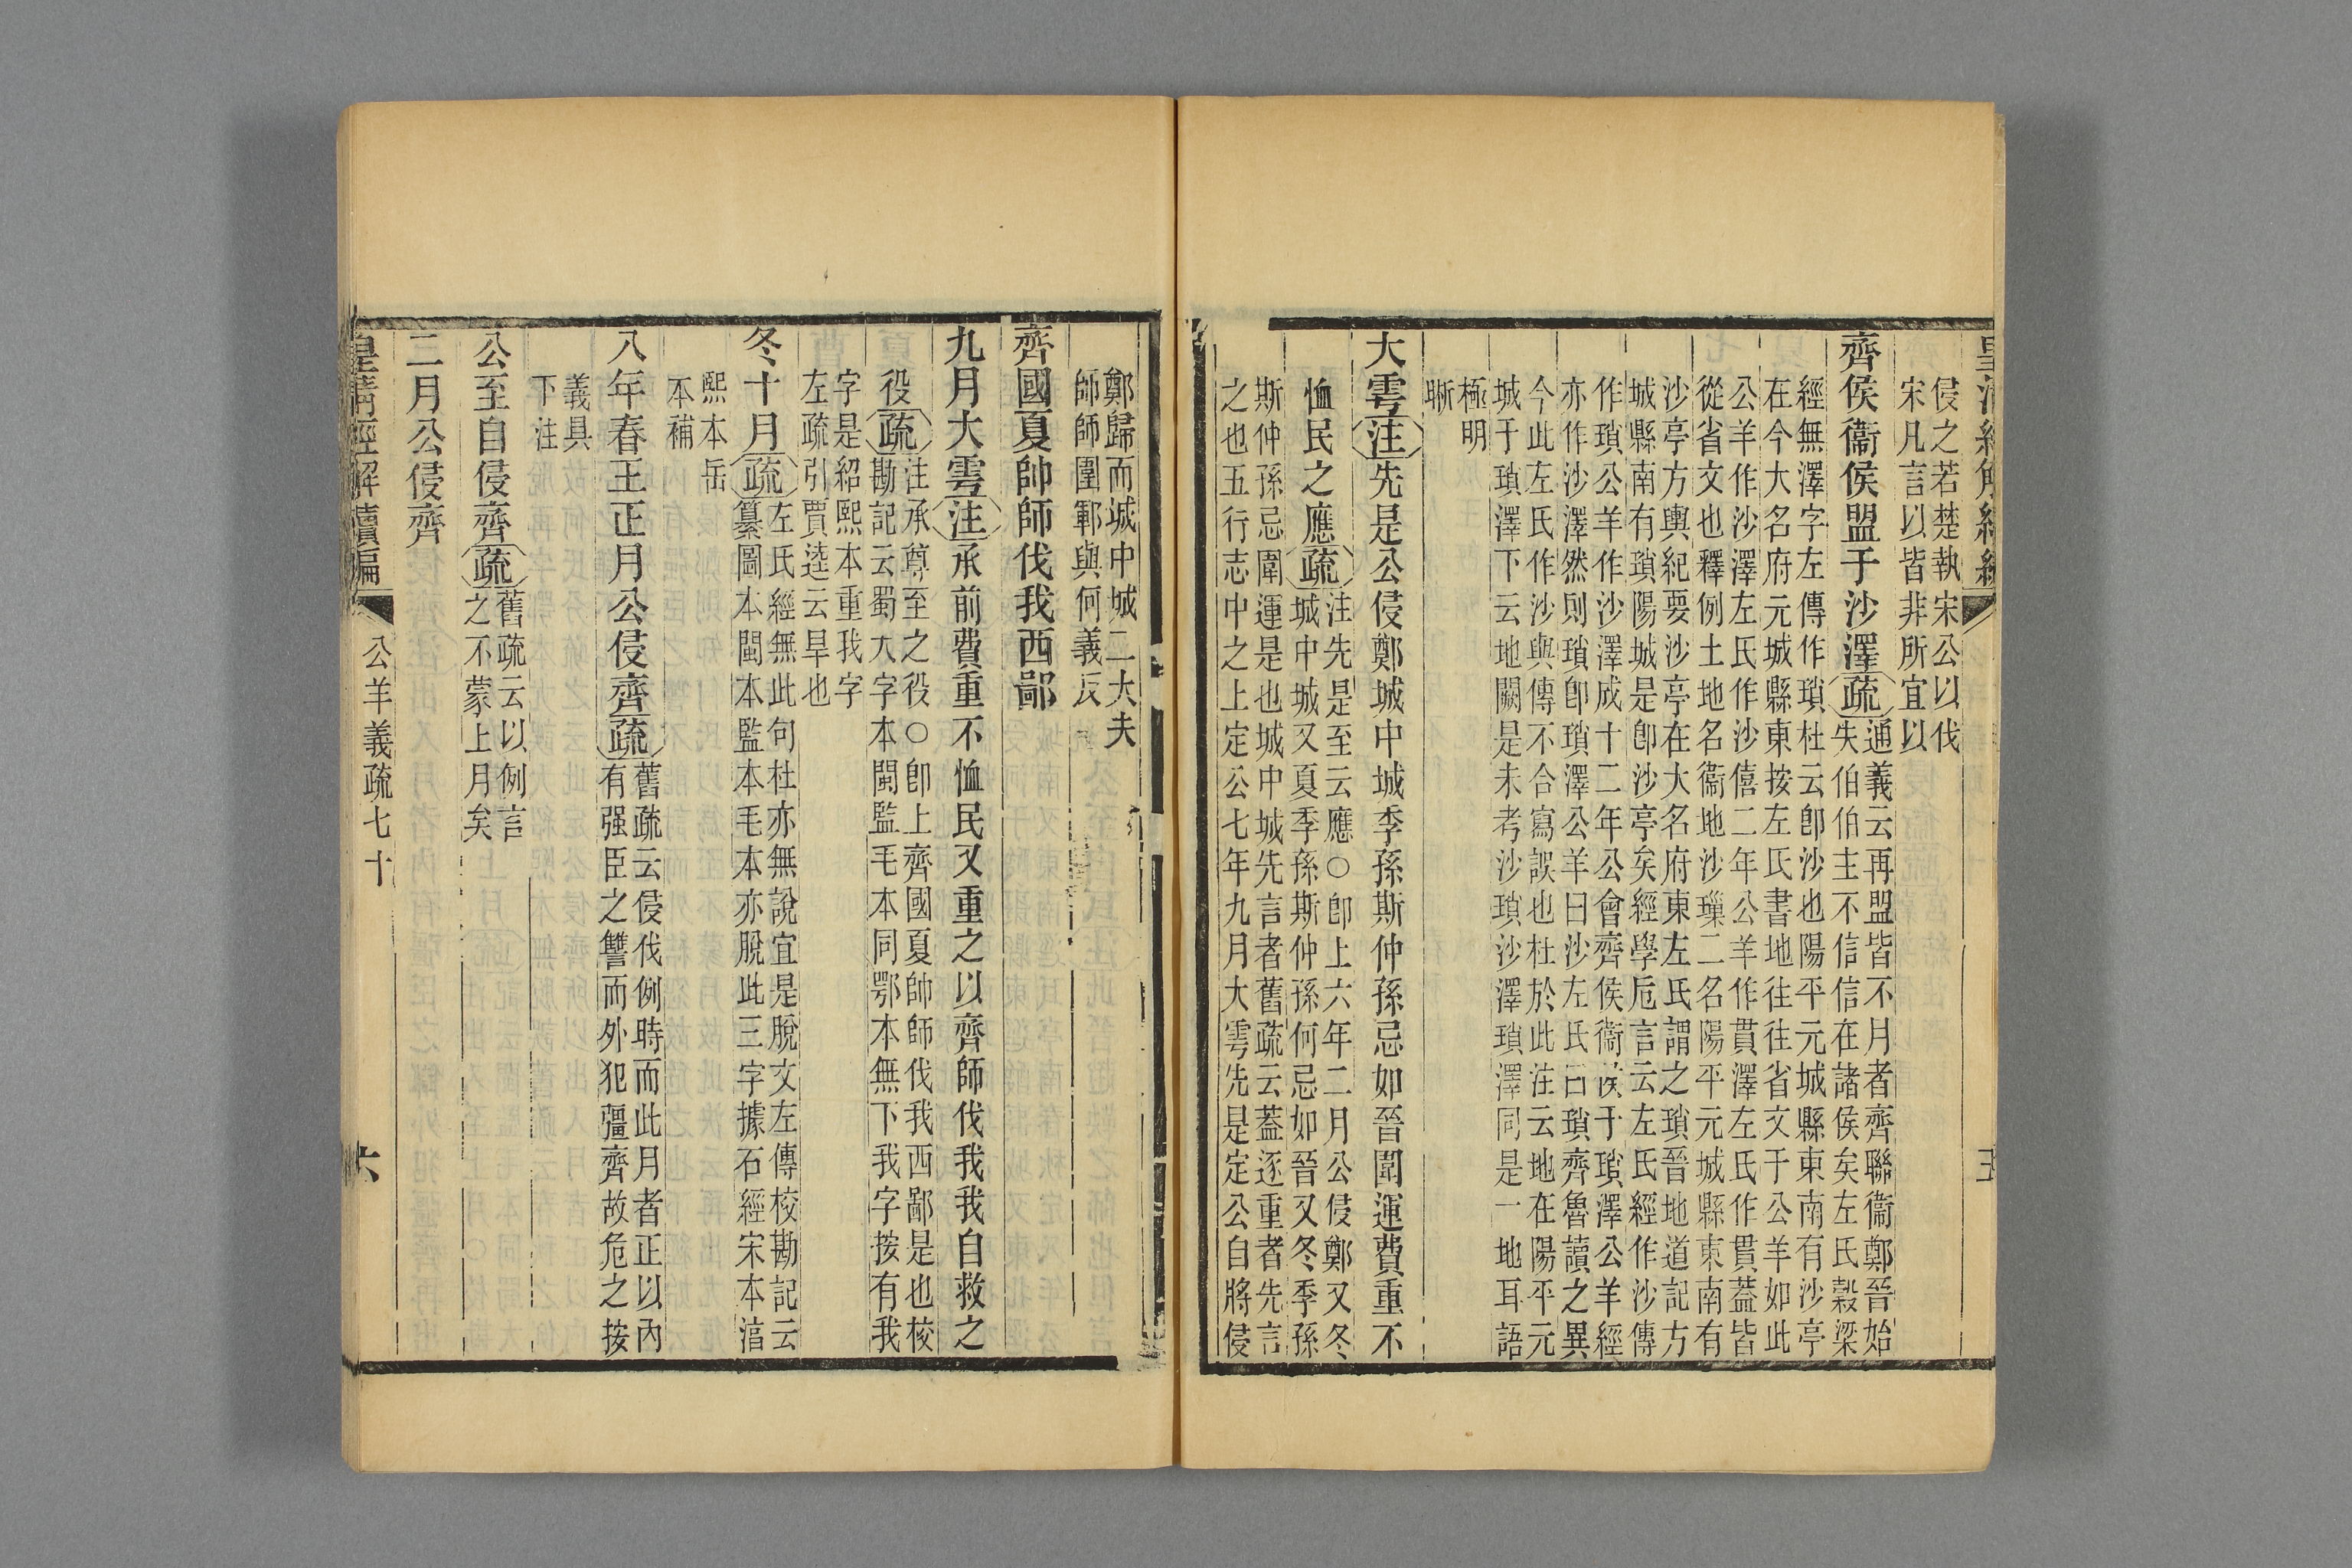 侵之若楚執宋公以伐
宋凡言以皆非所宜以
齊侯衞侯盟于沙澤疏通義云再盟皆不月者齊聯衞鄭晉始
失伯伯主不信信在諸侯矣左氏穀梁
經無澤字左傳作瑣杜云卽沙也陽平元城縣東南有沙亭
在今大名府元城縣東按左氏書地往往省文于公羊如此
公羊作沙澤左氏作沙僖二年公羊作貫澤左氏作貫蓋皆
從省文也釋例土地名衞地沙瑣二名陽平元城縣東南有
沙亭方輿紀要沙亭在大名府東左氏謂之瑣晉地道記方
城縣南有瑣陽城是卽沙亭矣經學卮言云左氏經作沙傳
作瑣公羊作沙澤成十二年公會齊侯衞侯于瑣澤公羊經
亦作沙澤然則瑣卽瑣澤公羊曰沙左氏曰瑣齊魯讀之異
今此左氏作沙與傳不合寫誤也杜於此注云地在陽平元
城于瑣澤下云地闕是未考沙瑣沙澤瑣澤同是一地耳語
極明
晰
大雩注先是公侵鄭城中城季孫斯仲孫忌如晉圍運費重不
恤民之應疏注先是至云應○卽上六年二月公侵鄭又冬
城中城又夏季孫斯仲孫何忌如晉又冬季孫
斯仲孫忌圍運是也城中城先言者舊疏云蓋逐重者先言
之也五行志中之上定公七年九月大雩先是定公自將侵
鄭歸而城中城二大夫
師師圍鄆與何義反
齊國夏帥師伐我西鄙
九月大雩注承前費重不恤民又重之以齊師伐我我自救之
役疏注承尊至之役○卽上齊國夏帥師伐我西鄙是也校
勘記云蜀大字本閩監毛本同鄂本無下我字按有我
字是紹熙本重我字
左疏引賈逵云旱也
冬十月疏左氏經無此句杜亦無說宜是脫文左傳校勘記云
纂圖本閩本監本毛本亦脫此三字據石經宋本湻
熙本岳
本補
八年春王正月公侵齊疏舊疏云侵伐例時而此月者正以內
有强臣之讐而外犯彊齊故危之按
義具
下注
公至自侵齊疏舊疏云以例言
之不蒙上月矣
二月公侵齊
皇淸經解續編
公羊義疏七十
六